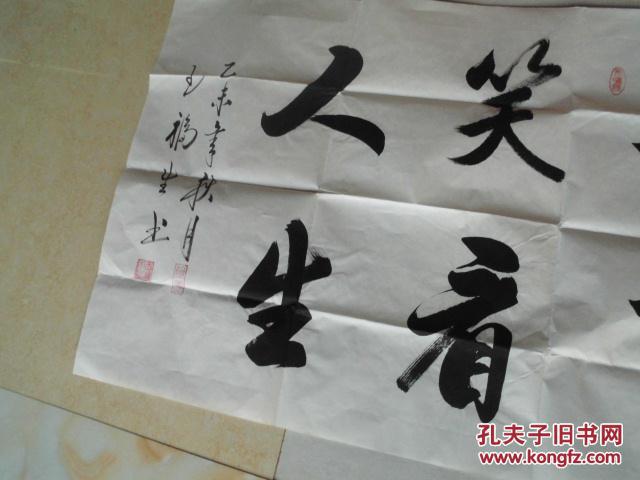 笑看
人生
乙未年秋月
王福生书
孔夫子旧书网
www.kongfz.com